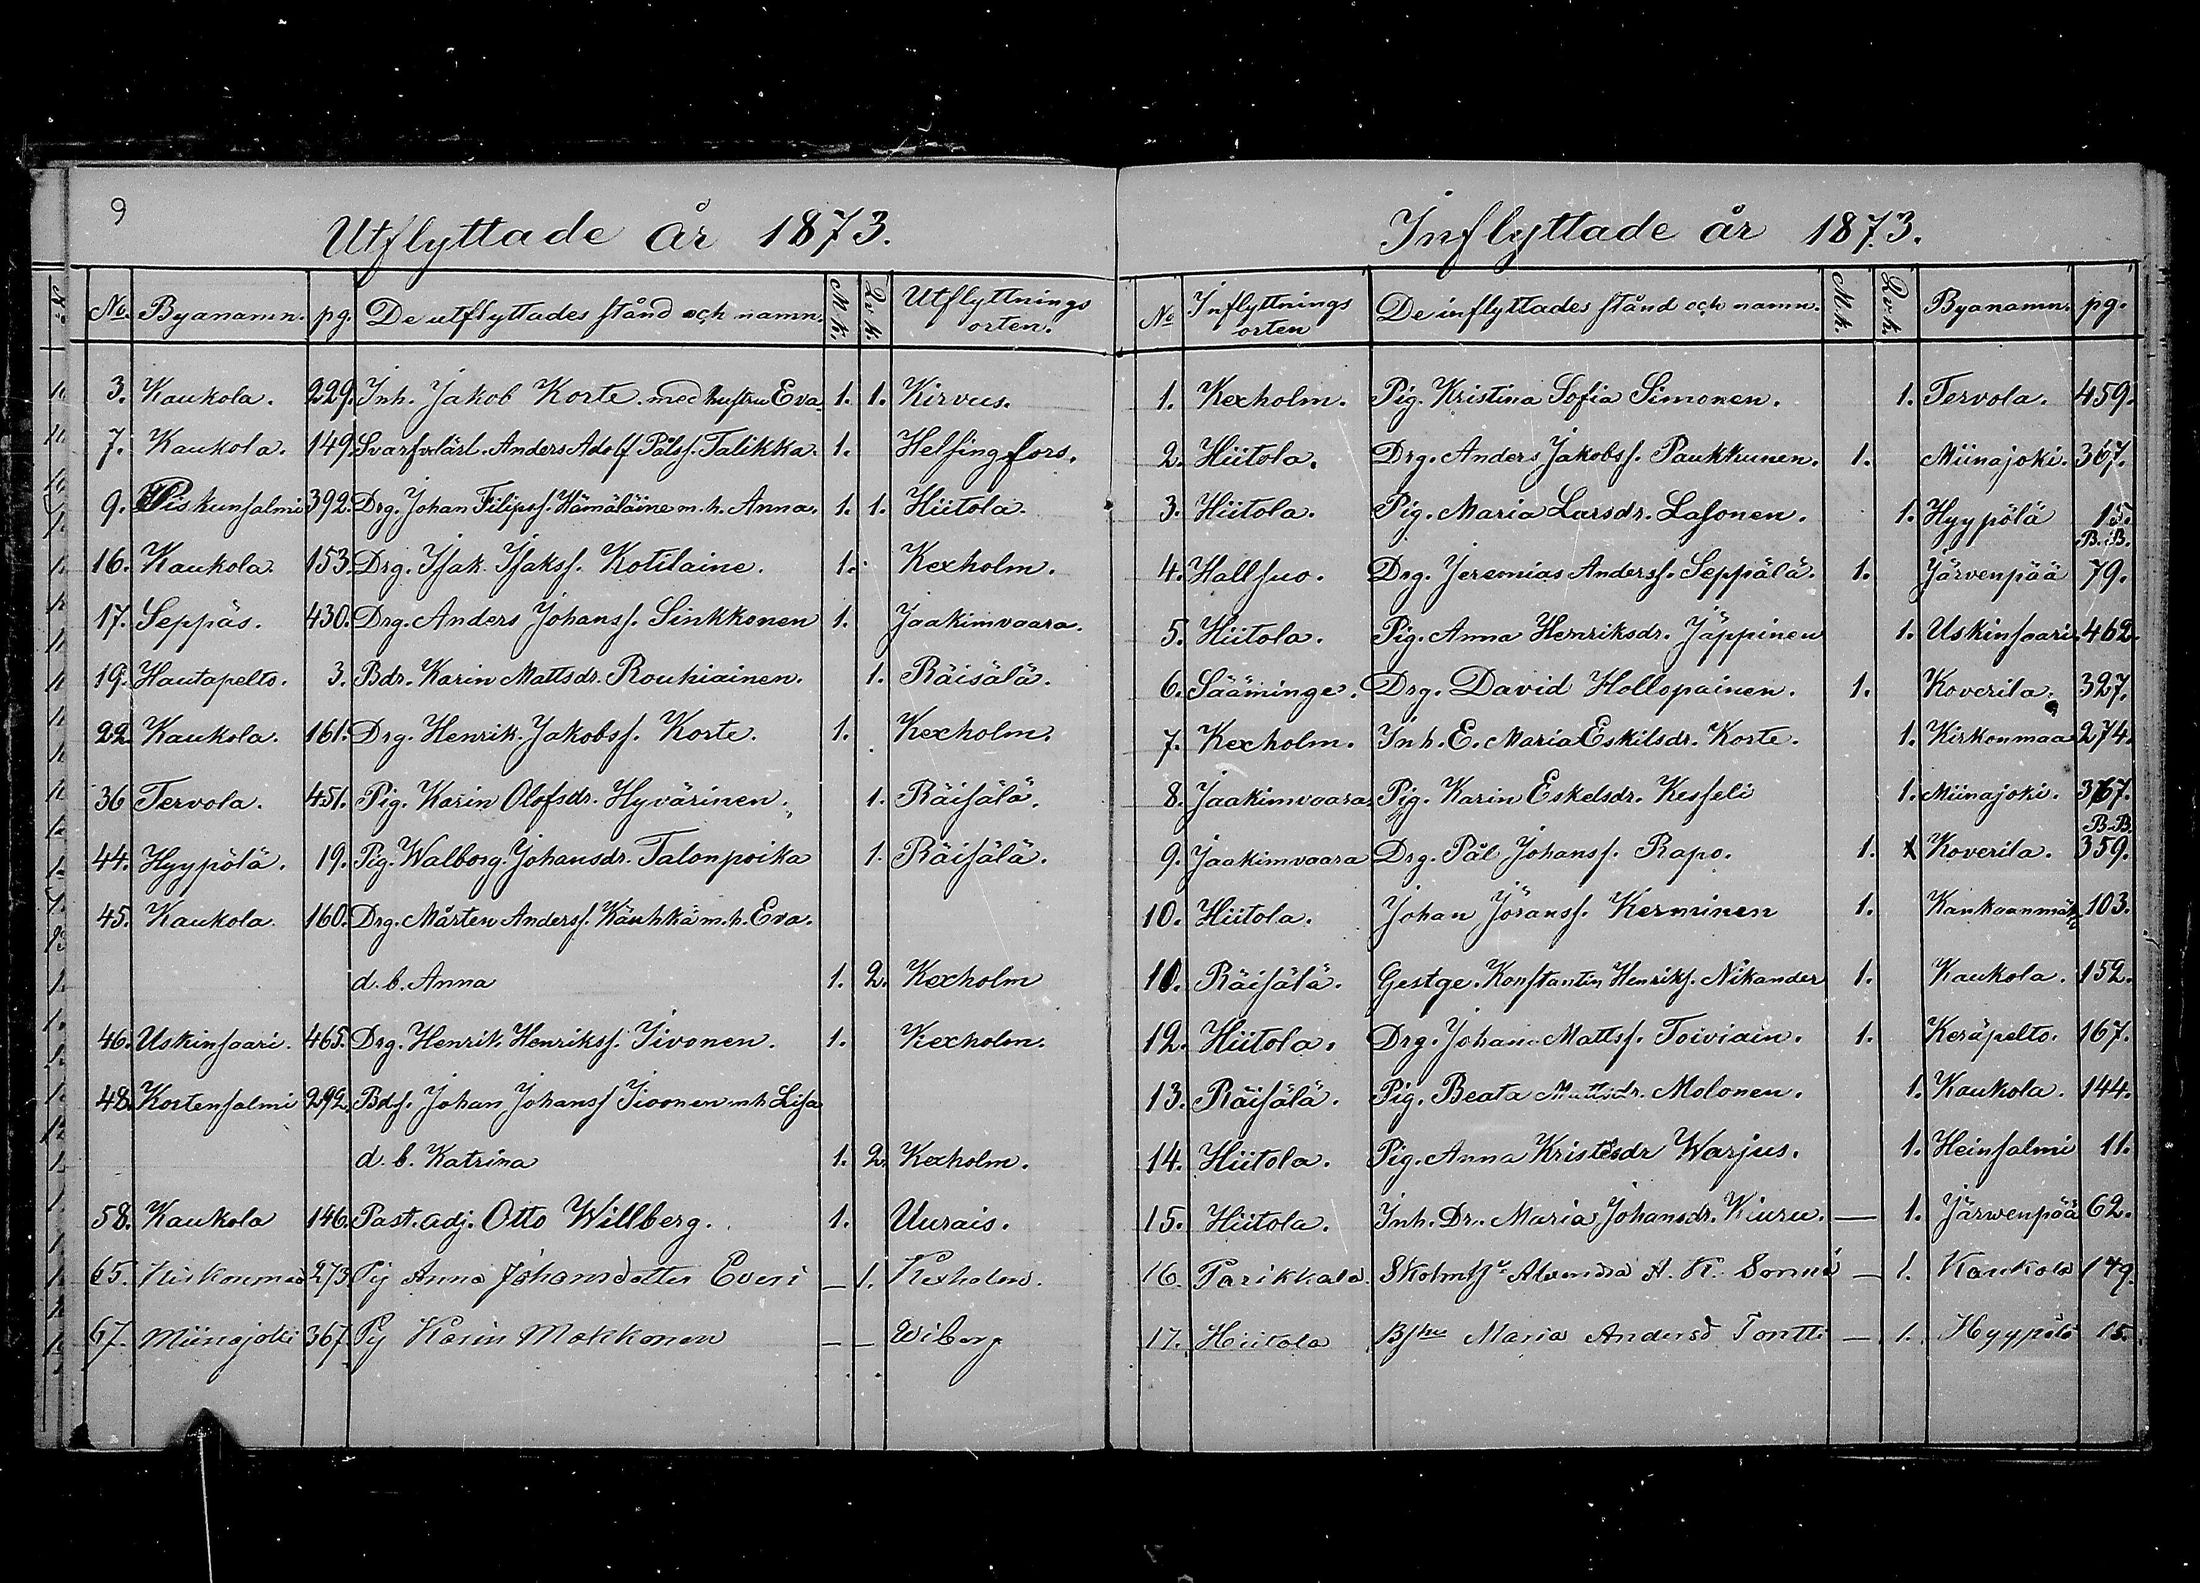 9
Utflyttade år 1873.
No. Byanamn. pg. De utflyttades stånd och namn. M.k. Qv.k. Utflyttnings orten.
3. Kaukola. 229. Inh. Jakob Korte. med hustru Eva. 1. 1. Kirvus.
7. Kaukola. 149. Svarfvelärl. Anders Adolf Pålss. Talikka. 1. Helsingfors.
9. Piskunsalmi 392. Drg. Johan Filipss. Hämäläine m.h. Anna. 1. 1. Hiitola.
16. Kaukola. 153. Drg. Isak Isakss. Kotilaine. 1. Kexholm.
17. Seppäs. 430. Drg. Anders Johanss. Sinkkonen 1. Jaakimvaara.
19. Hautapelto. 3. Bdr. Karin Mattsdr. Rouhiainen. 1. Räisälä.
22. Kaukola. 161. Drg. Henrik Jakobss. Korte. 1. Kexholm.
36 Tervola. 451. Pig. Karin Olofsdr. Hyvärinen. 1. Räisälä.
44. Hyypölä. 19. Pig. Walborg Johansdr. Talonpoika 1. Räisälä.
45. Kaukola. 160. Drg. Mårten Anderss. Käuhkä m.h. Eva.
d.b. Anna 1. 2. Kexholm
46. Uskinsaari. 465. Drg. Henrik Henrikss. Iivonen. 1. Kexholm.
48. Kortensalmi 292. Bds. Johan Johanss Iivonen m.h Lisa
d.b. Katrina 1. 2. Kexholm.
58. Kaukola 146. Past. adj. Otto Willberg. 1. Uurais.
65. Kirkonmaa 273 Pig Anna Johansdotter Everi — 1. Kexholm.
67. Miinajoki 367 Pg Karin Mokkonen — — Wiborg
Inflyttade år 1873.
No Inflyttnings orten De inflyttades stånd och namn. M.k. Qv.k. Byanamn. pg.
1. Kexholm. Pig. Kristina Sofia Simonen. 1. Tervola. 459.
2. Hiitola. Drg. Anders Jakobss. Paukkunen. 1. Miinajoki. 367.
3. Hiitola. Pig. Maria Larsdr. Lasonen. 1. Hyypölä 15. B.B.
4. Hallsuo. Drg. Jeremias Anderss. Seppälä. 1. Järvenpää 79.
5. Hiitola. Pig. Anna Henriksdr. Jäppinen 1. Uskinsaari. 462.
6. Sääminge. Drg. David Hollopainen. 1. Koverila. 327.
7. Kexholm. Inh. E. Maria Eskilsdr. Korte. 1. Kirkonmaa 274.
8. Jaakimvaara. Pig. Karin Eskelsdr. Kesseli 1. Miinajoki. 367. B.B.
9. Jaakimvaara Drg. Pål Johanss. Rapo. 1. Koverila. 359.
10. Hiitola. Johan Jöranss. Kerminen 1. Kankaanmäki 103.
10. Räisälä. Gestge. Konstantin Henrikss. Nikander 1. Kaukola. 152.
12. Hiitola. Drg. Johan Mattss. Toiviain. 1. Keräpelto. 167.
13. Räisälä. Pig. Beata Mattsdr. Molonen. 1. Kaukola. 144.
14. Hiitola. Pig. Anna Kristersdr Warjus. 1. Heinsalmi 11.
15. Hiitola. Inh. Dr. Maria Johansdr. Kiuru. — 1. Järwenpää 62.
16. Parikkala. A. K. — 1. Kaukola 149.
17. Hiitola Maria Andersd Tontti — 1. Hyypölä 15.